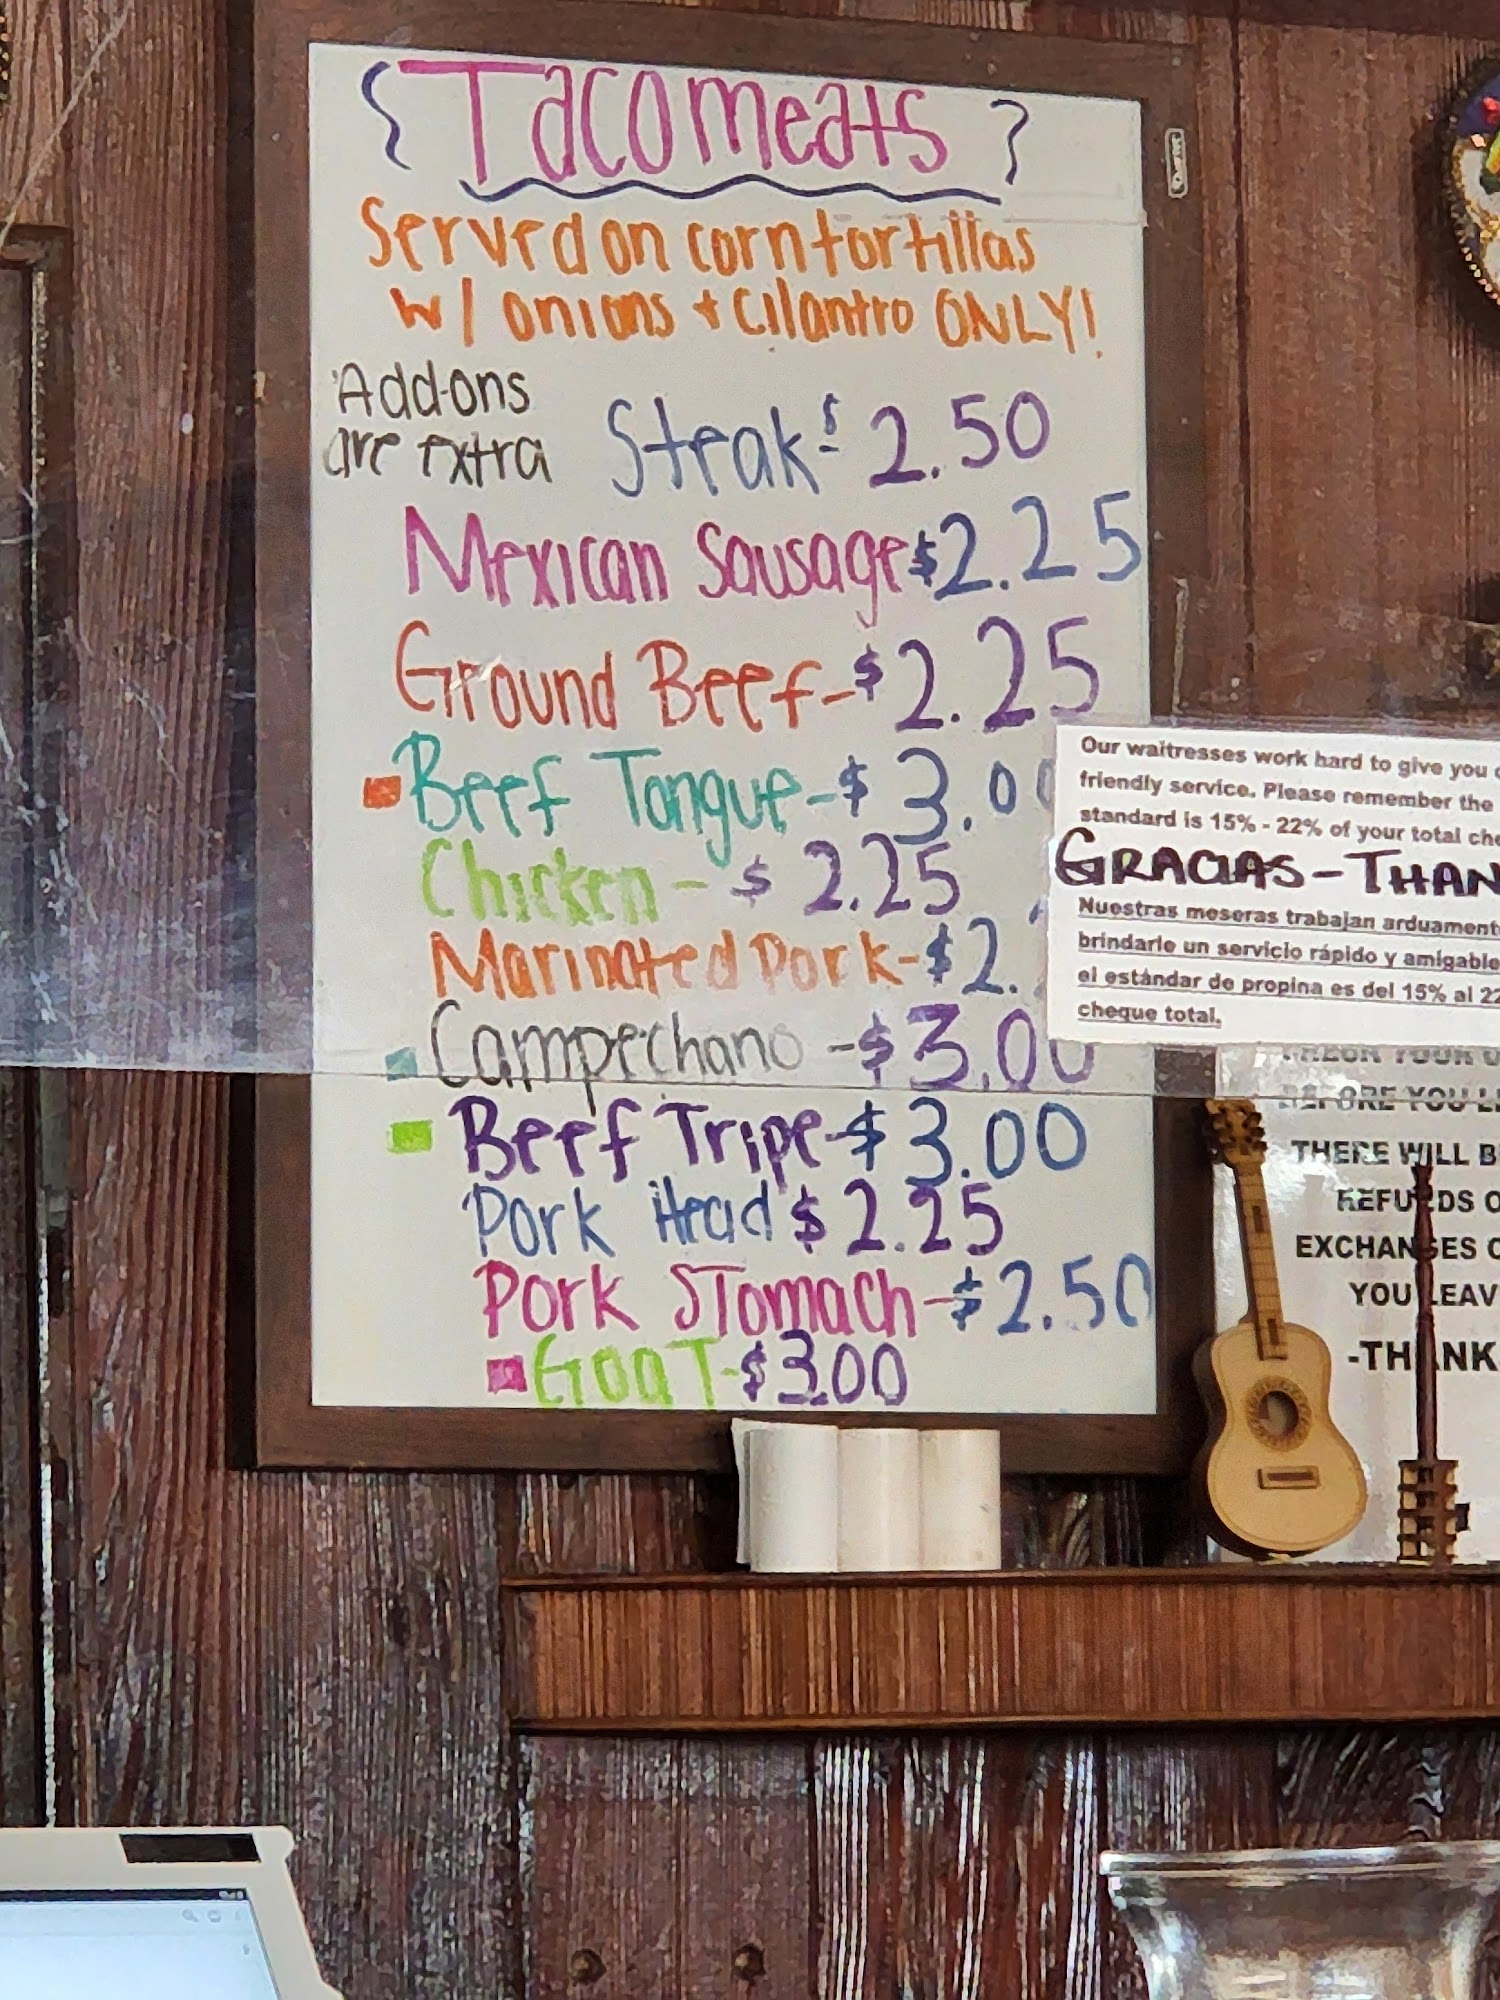 { Taco meats }
Served on corn tortillas
w/ onions + cilantro ONLY!
Add-ons
are extra
Steak-$2.50
Mexican Sausage $2.25
Ground Beef-$2.25
Beef Tongue-$3.00
Chicken-$2.25
Marinated Pork-$2.
Campechano-$3.00
Beef Tripe-$3.00
Pork Head $2.25
Pork Stomach-$2.50
Goat-$3.00
Our waitresses work hard to give you
friendly service. Please remember the
standard is 15% - 22% of your total
GRACIAS-THAN
Nuestras meseras trabajan arduament
brindarle un servicio rápido y amigable
el estándar de propina es del 15% al 22
cheque total.
BEFORE YOU
THERE WILL B
REFUNDS O
EXCHANGES
YOU LEAV
-THANK